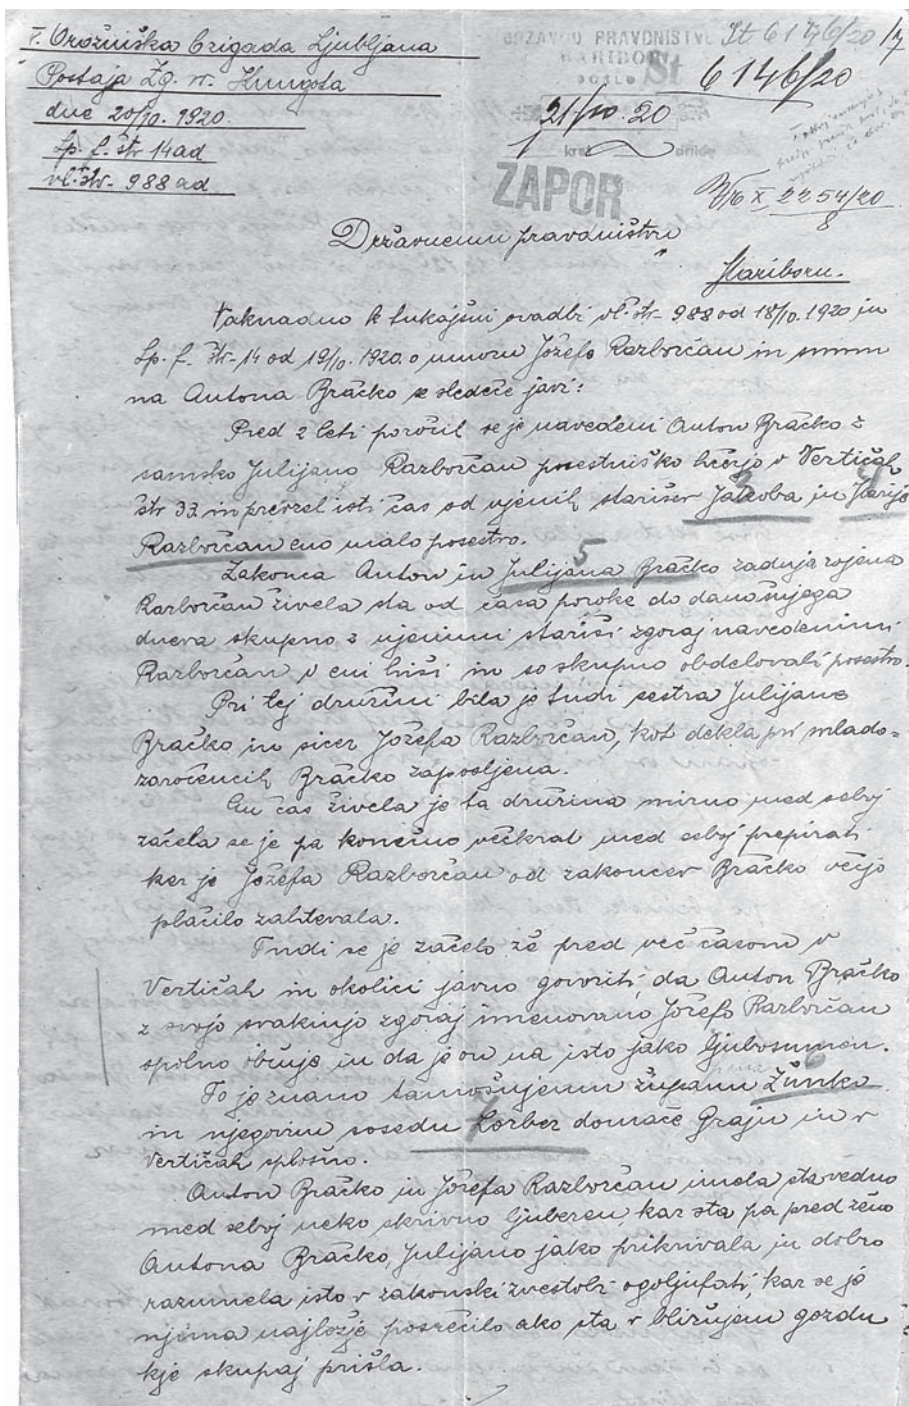 V. Orožniška brigada Ljubljana
Postaja Zg. sv. Kungota
dne 20/10. 1920.
Sp. f. štr 14 ad
vl. štr. 988 ad
DRŽAVNO PRAVDNIŠTVO
MARIBOR
DOŠLO
St 6146/20
St
6146/20
21/10. 20
1 krat prilog
ZAPOR
X 2254/20
8
Državnemu pravdništvu
Mariboru.
Naknadno k tukajšni ovadbi vl. štr. 988 od 18/10. 1920 in
Sp. f. štr. 14 od 19/10. 1920. o umoru Jožefe Razborčan in
na Antona Bračko se sledeče javi:
Pred 2 leti poročil se je navedeni Anton Bračko z
samsko Julijano Razborčan posestniško hčerjo v Vertičah
štr 33. in prevzel isti čas od njenih starišev Jakoba in Marije
Razborčan eno malo posestvo.
Zakonca Anton in Julijana Bračko zadnja rojena
Razborčan živela sta od časa poroke do današnjega
dneva skupno z njenimi stariši zgoraj navedenimi
Razborčan v eni hiši in so skupno obdelovali posestvo.
Pri tej družini bila je tudi sestra Julijane
Bračko in sicer Jožefa Razborčan, kot dekla pri mlado=
zaročencih Bračko zaposljena.
En čas živela je ta družina mirno med seboj
začela se je pa konečno večkrat med seboj prepirati
ker je Jožefa Razborčan od zakoncev Bračko večjo
plačilo zahtevala.
Tudi se je začelo že pred več časom v
Vertičah in okolici javno govoriti, da Anton Bračko
z svojo svakinjo zgoraj imenovano Jožefo Razborčan
spolno občuje in da je on na isto jako ljubosumen.
To je znano tamošnjemu županu Žunko
in njegovim sosedu Lorber domače Graju in v
Vertičah splošno.
Anton Bračko in Jožefa Razborčan imela sta vedno
med seboj neko skrivno ljubezen, kar sta pa pred ženo
Antona Bračko, Julijano jako prikrivala in dobro
razumela isto v zakonski zvestobi ogoljufati, kar se je
njema najložje posrečilo ako sta v bližnjem gozdu
kje skupaj prišla.